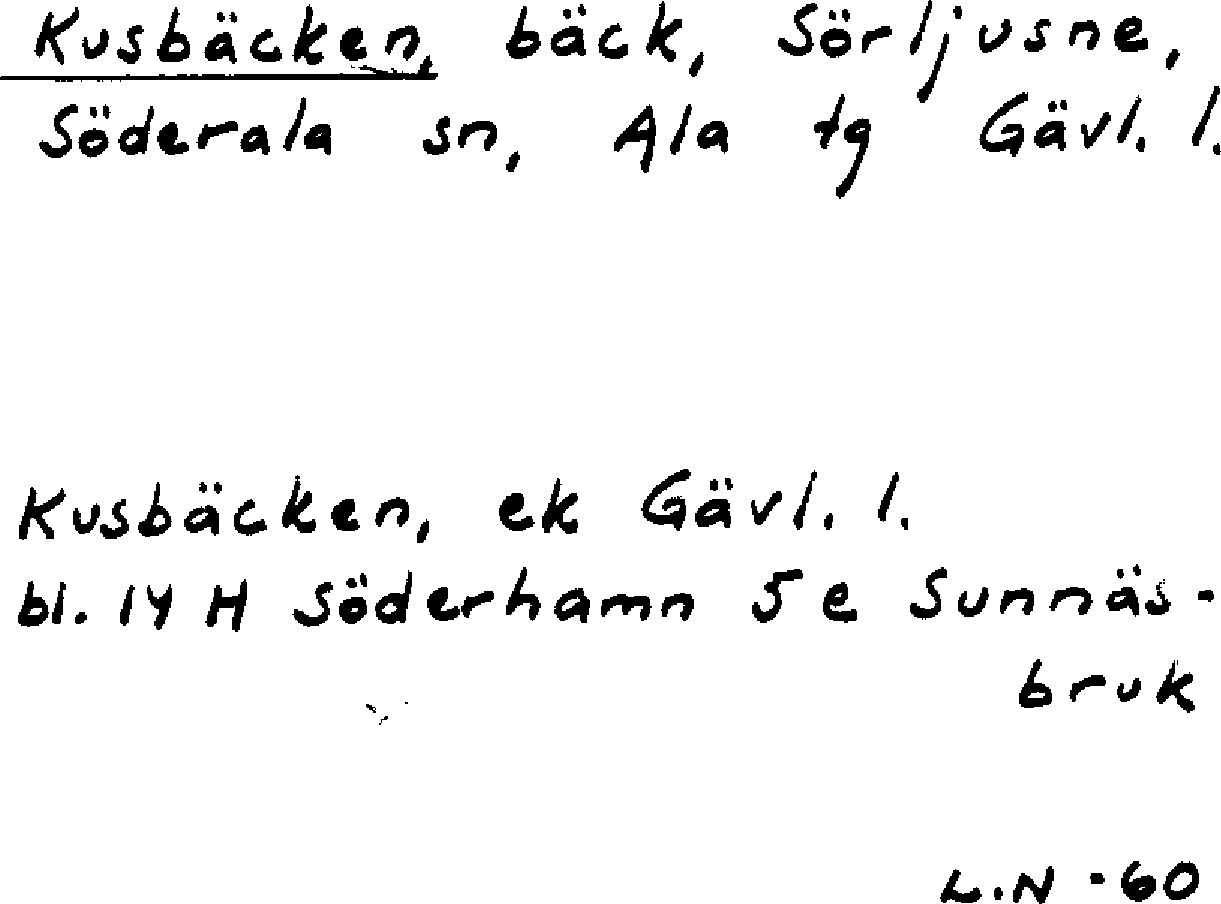 Kusbäcken, bäck, Sörljusne,
Söderala sn, Ala tg Gävl. l.
Kusbäcken, ek Gävl. l.
bl. 14 H Söderhamn 5 e Sunnäs-
bruk
L.N -60